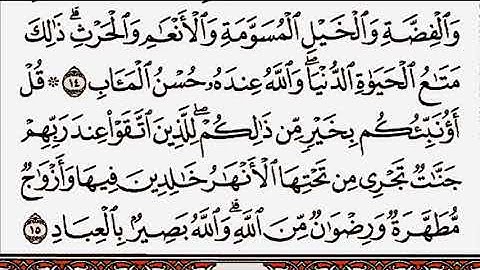 وَٱلْفِضَّةِ وَٱلْخَيْلِ ٱلْمُسَوَّمَةِ وَٱلْأَنْعَٰمِ وَٱلْحَرْثِ ۗ ذَٰلِكَ
مَتَٰعُ ٱلْحَيَوٰةِ ٱلدُّنْيَا ۖ وَٱللَّهُ عِندَهُۥ حُسْنُ ٱلْمَـَٔابِ ١٤ ۞ قُلْ
أَؤُنَبِّئُكُم بِخَيْرٍ مِّن ذَٰلِكُمْ ۚ لِلَّذِينَ ٱتَّقَوْا۟ عِندَ رَبِّهِمْ
جَنَّٰتٌ تَجْرِى مِن تَحْتِهَا ٱلْأَنْهَٰرُ خَٰلِدِينَ فِيهَا وَأَزْوَٰجٌ
مُّطَهَّرَةٌ وَرِضْوَٰنٌ مِّنَ ٱللَّهِ ۗ وَٱللَّهُ بَصِيرٌۢ بِٱلْعِبَادِ ١٥